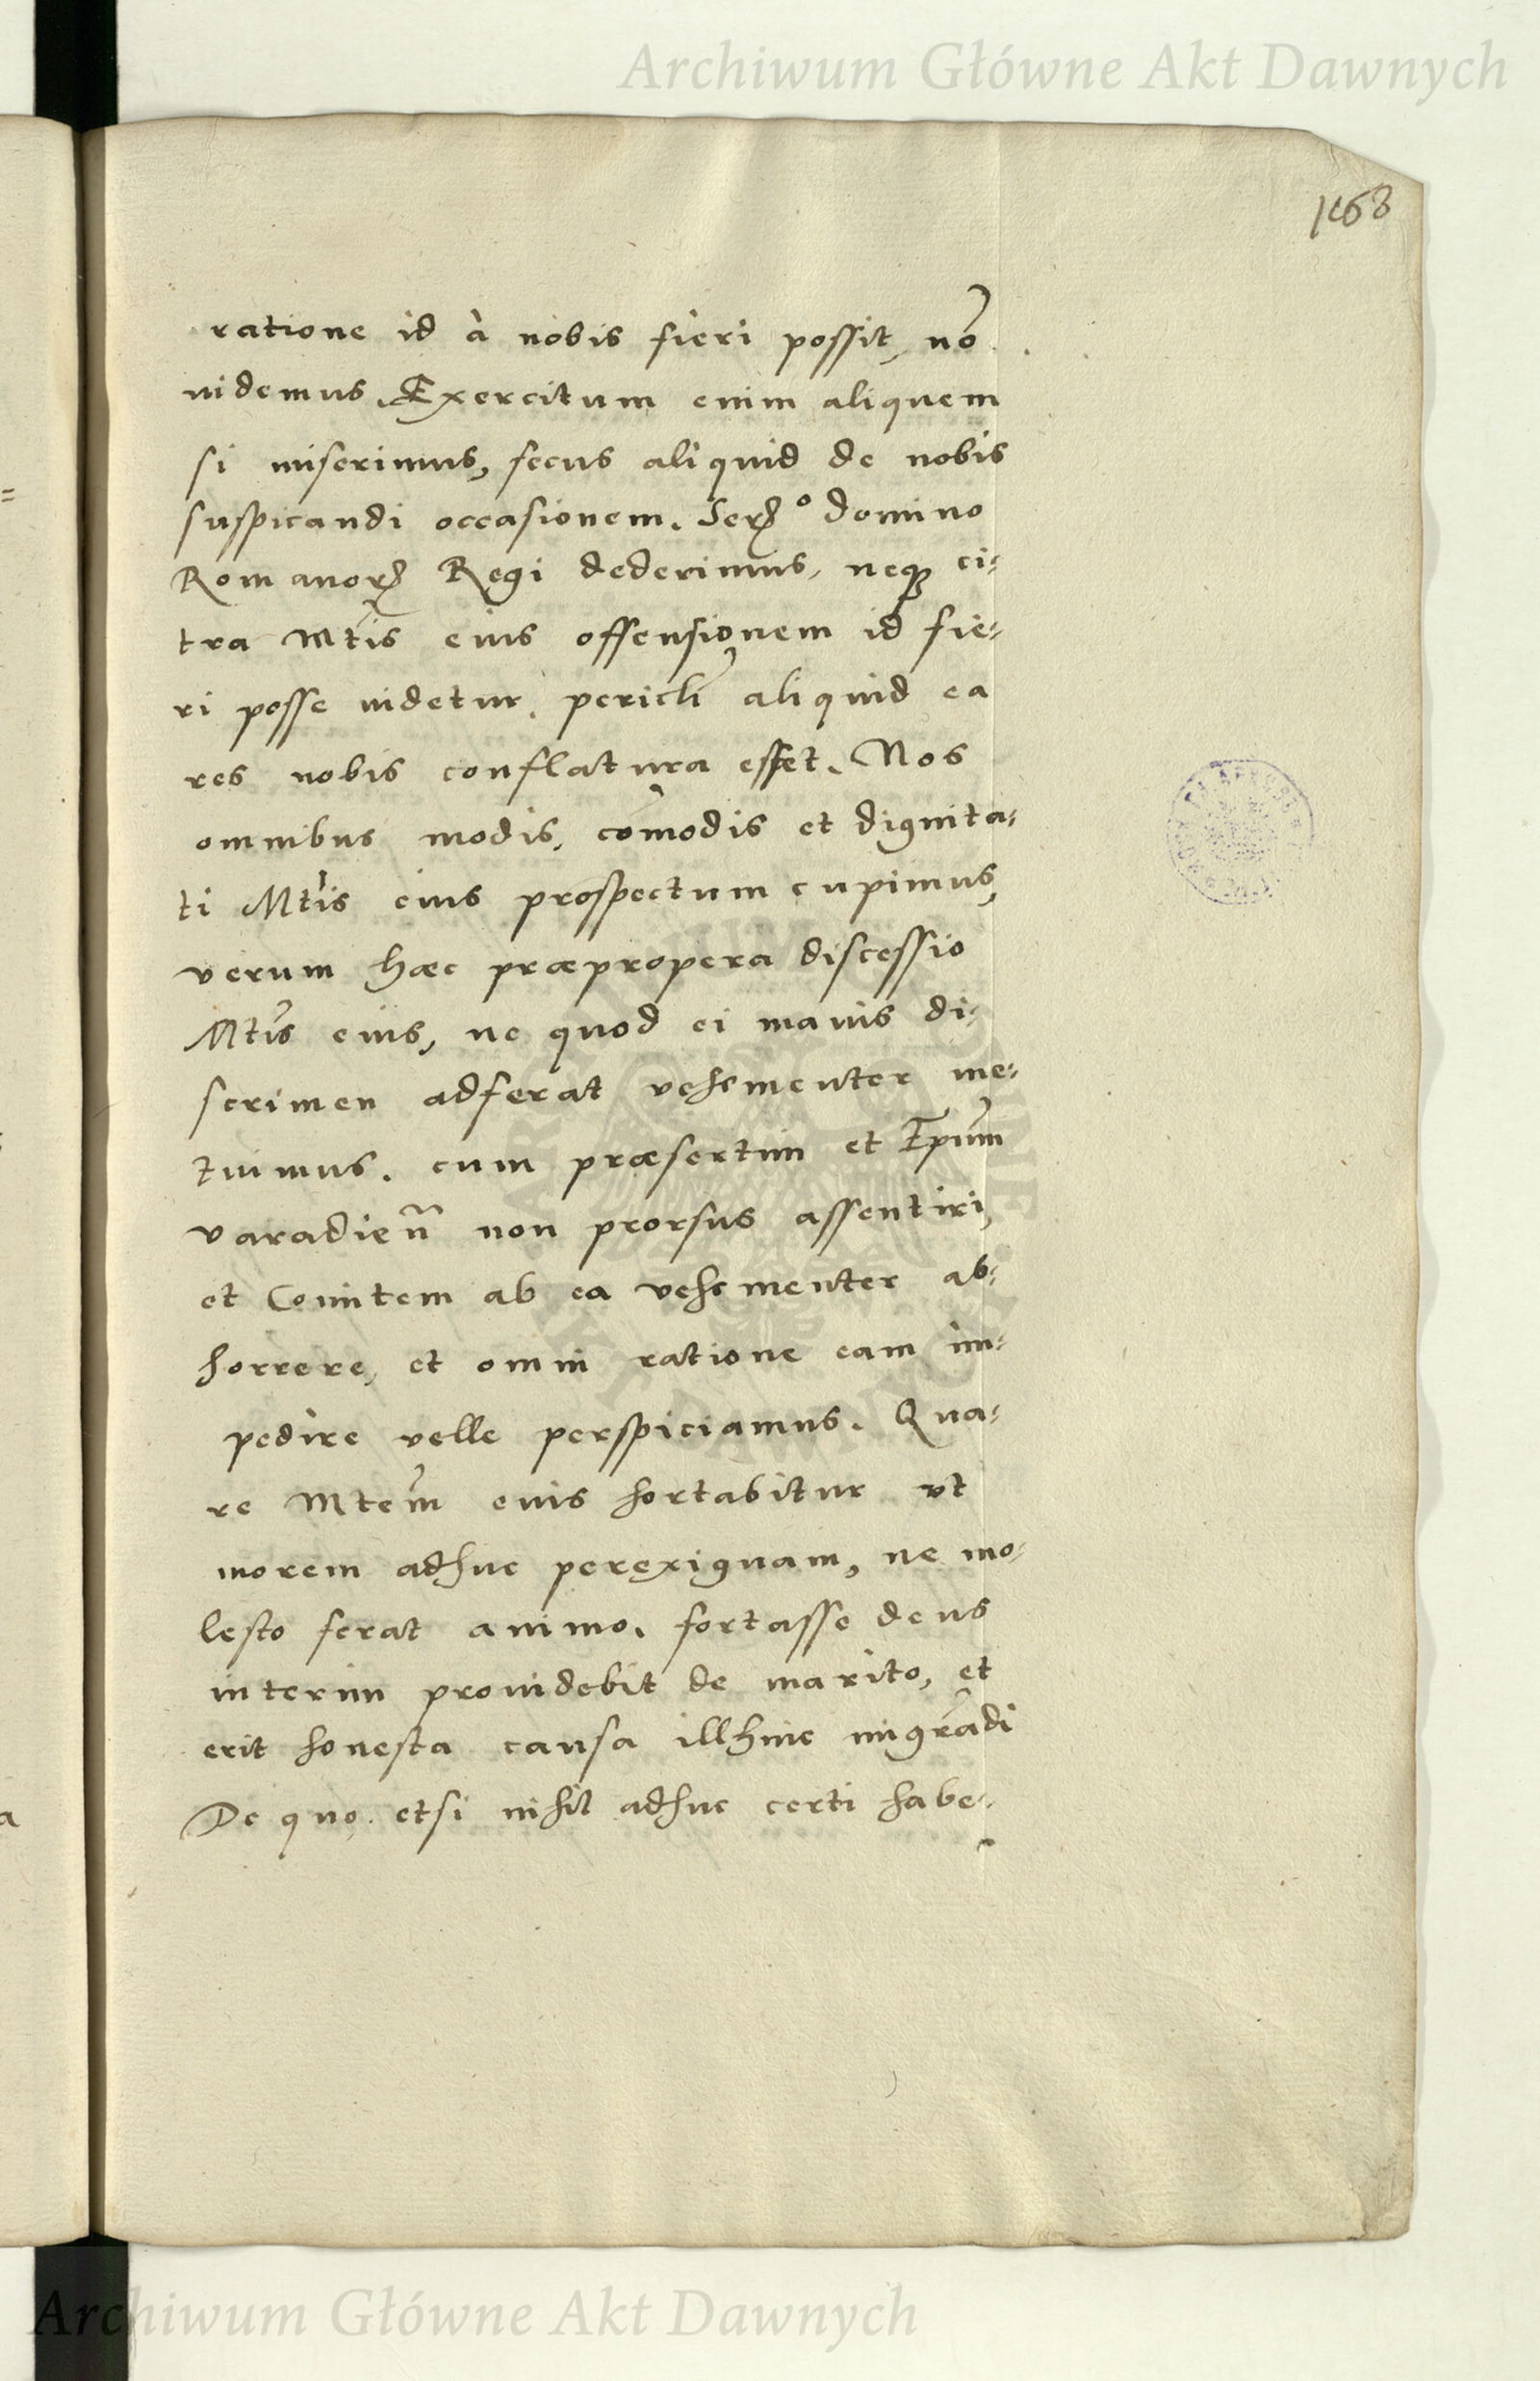 Archiwum Główne Akt Dawnych
168
ratione id à nobis fieri possit, nõ
uidemus. Exercitum enim aliquem
si miserimus, secus aliquid de nobis
suspicandi occasionem. Serꝫ° domino
Romanorꝫ Regi dederimus, neqꝫ ci=
tra Mtis eius offensionem id fie=
ri posse uidetur. pericli aliquid ea
res nobis conflatura esset. Nos
omnibus modis, cõmodis et dignita=
ti Mtis eius prospectum cupimus,
verum hæc præpropera discessio
Mtis eius, ne quod ei maius di=
scrimen adferat vehementer me=
tuimus. cum præsertim et Epũm
varadieñ non prorsus assentiri,
et Comitem ab ea vehementer ab=
horrere, et omni ratione eam im=
pedire velle perspiciamus. Qua=
re Mtem eius hortabitur vt
morem adhuc perexiguam, ne mo=
lesto ferat animo. fortasse deus
interim prouidebit de marito, et
erit honesta causa illhinc migrãdi
De quo. etsi nihil adhuc certi habe=
Archiwum Główne Akt Dawnych